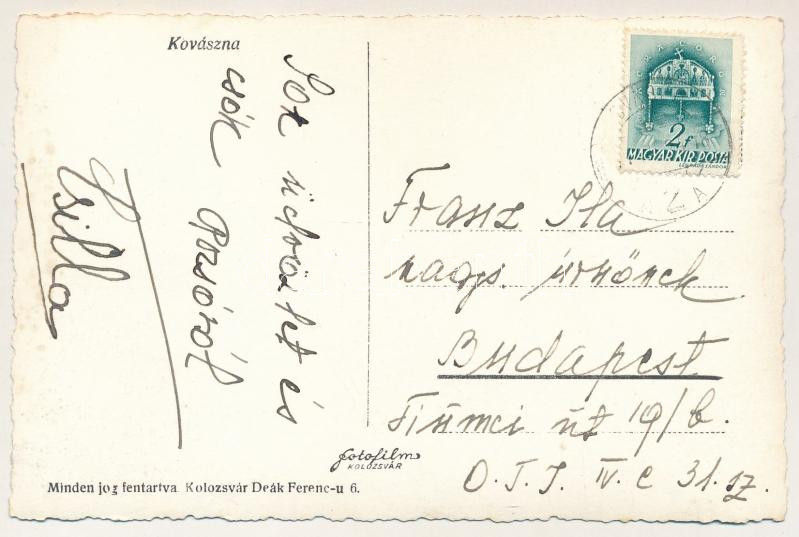 Kovászna
Sok üdvözlet és
csók
Csilla
2f
MAGYAR KIR. POSTA
Franz Ila
nagys. úrnőnek
Budapest
Fiumei út 19/b.
O. T. I. IV. e 31. sz.
fotofilm
KOLOZSVÁR
Minden jog fentartva. Kolozsvár Deák Ferenc-u 6.